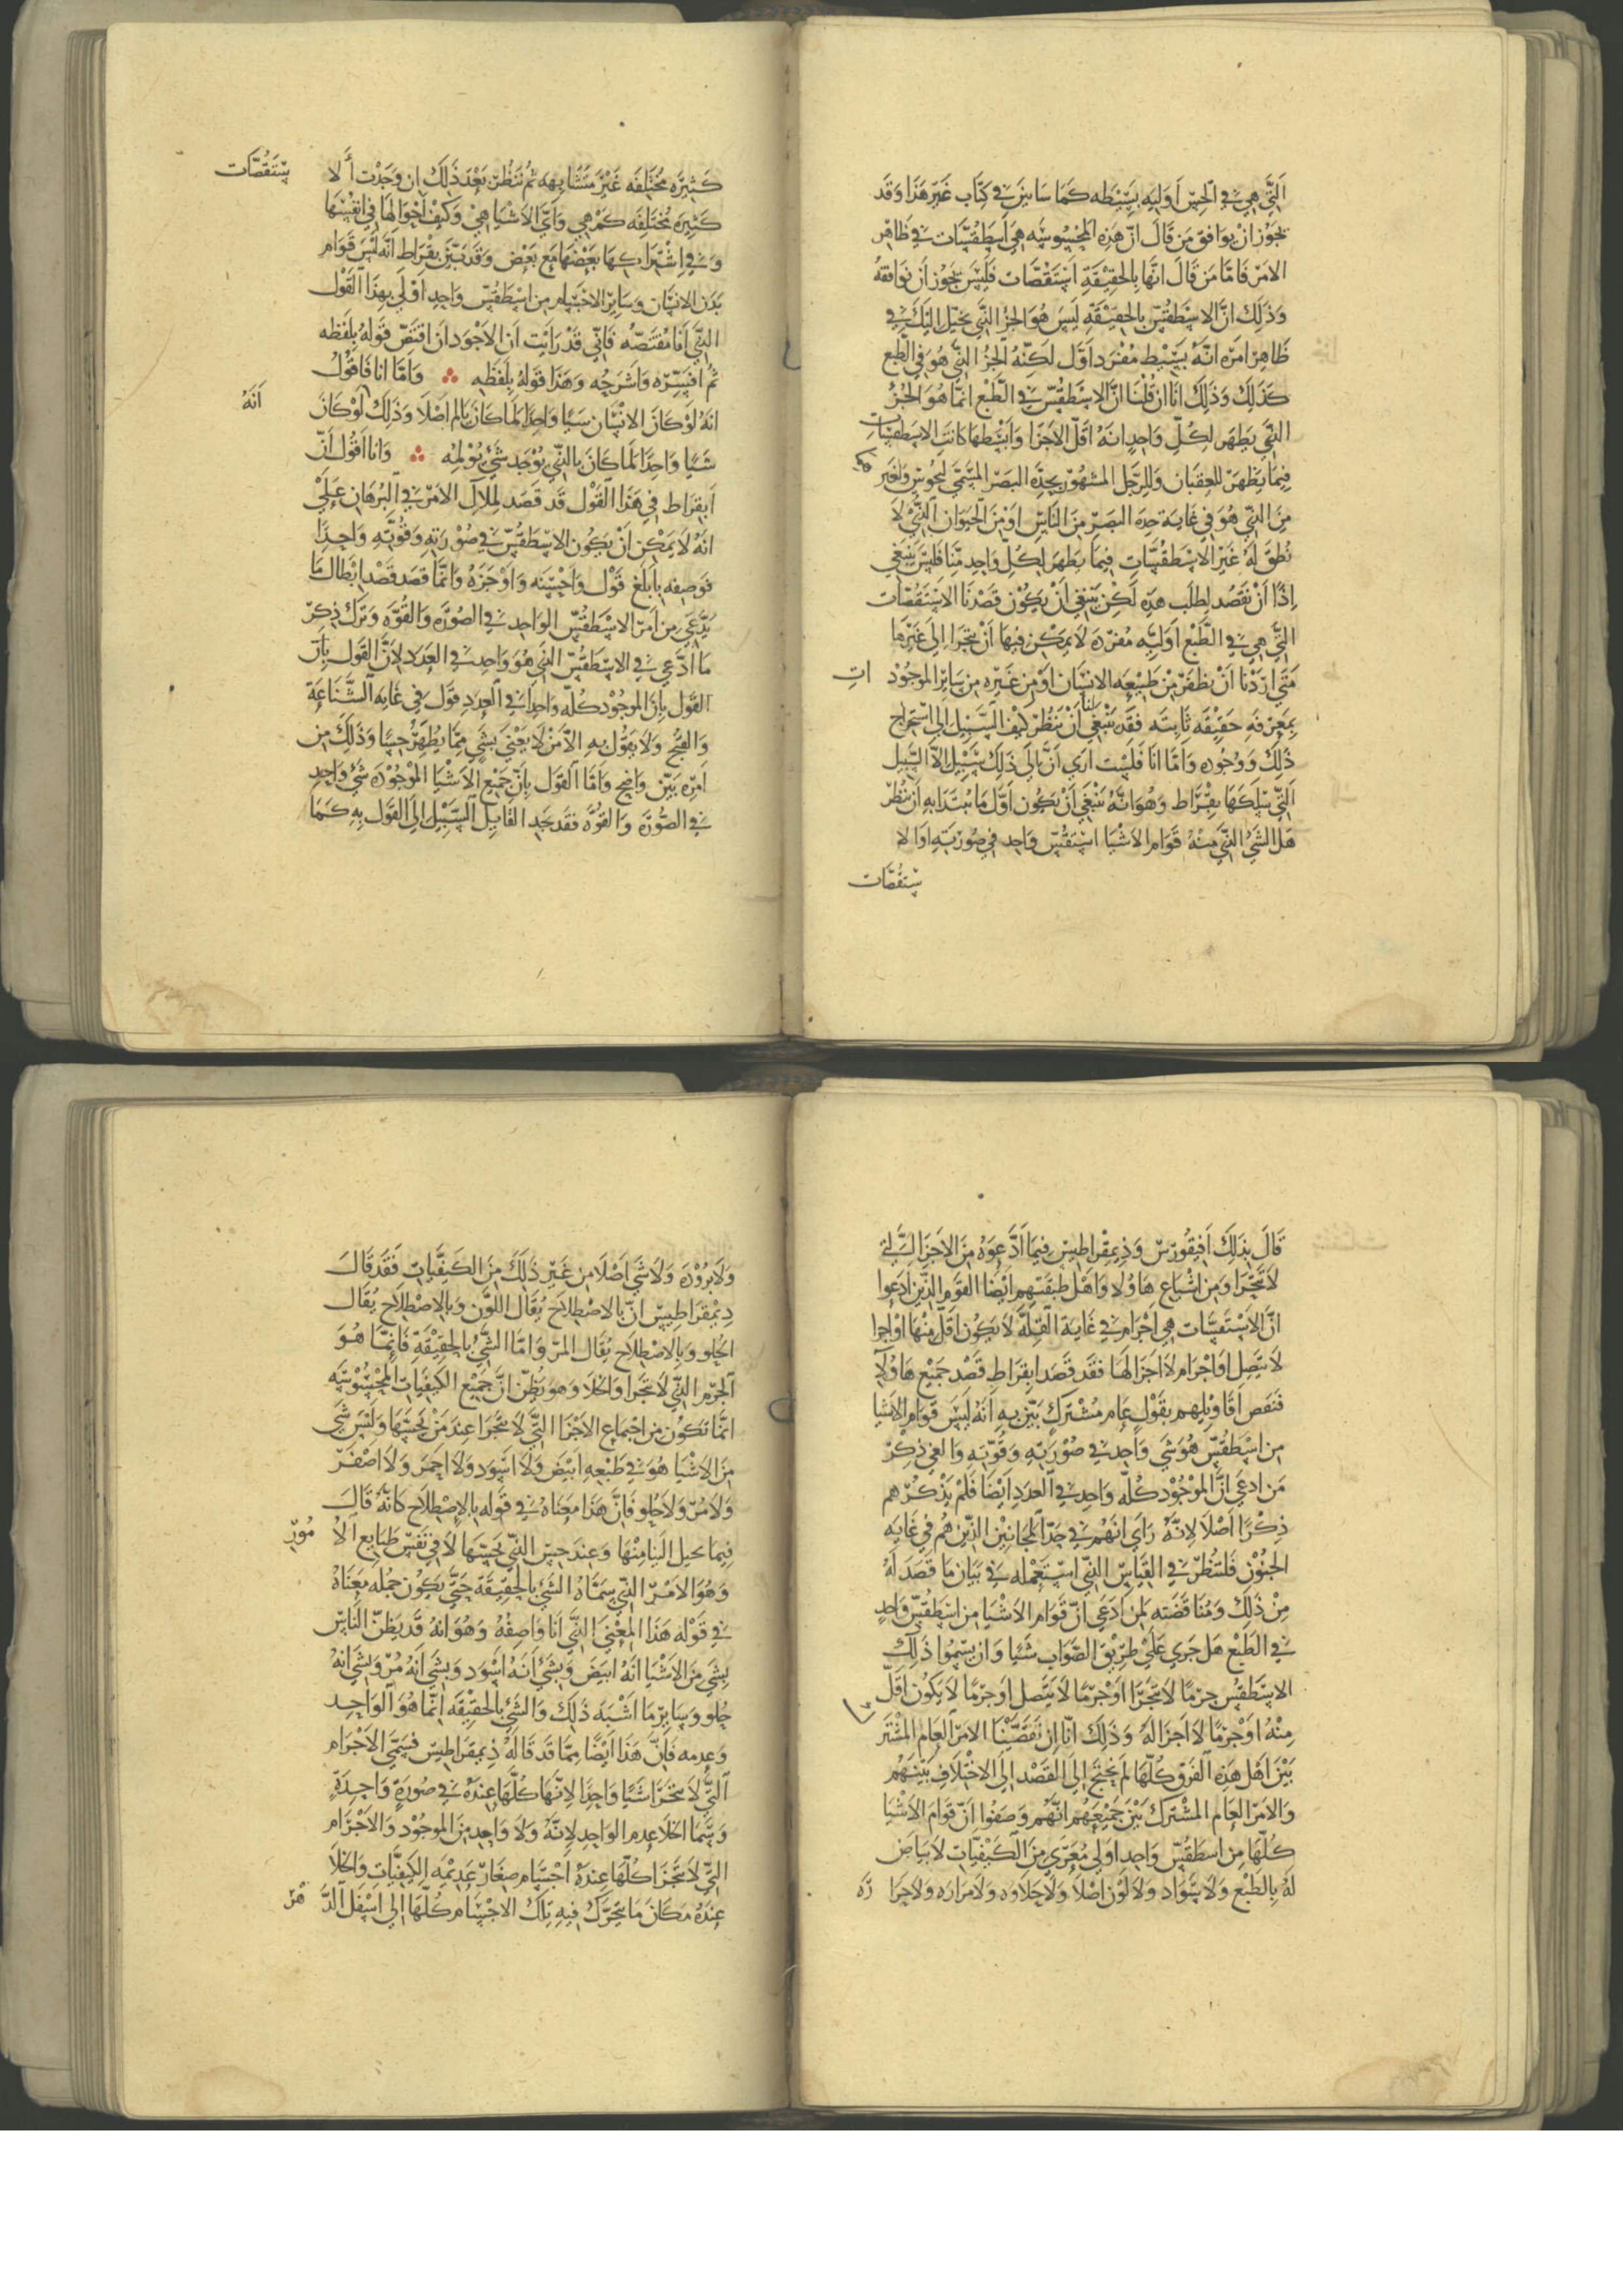 التي هي في الحس اوليه بسيطه كما سابين في كتاب غير هذا وقد
يجوز ان يوافق من قال ان هذه المحسوسه هي اسطقسات في ظاهر
الامر فاما من قال انها بالحقيقة استقصات فليس يجوز ان نوافقه
وذلك ان الاسطقس بالحقيقة ليس هو الجز الذي يخيل اليك في
ظاهر امره انه بسيط مفرد اول لكنه الجز الذي هو في الطبع
كذلك وذلك انا ان قلنا ان الاسطقس في الطبع انما هو الجز
الذي يظهر لكل واحد انه اقل الاجزا وابسطها كانت الاسطقسات
فيما يظهر للعقبان وللرجل المشهور بحدة البصر المسمى لنجوس ولغير
من الذي هو في غاية حدة البصر من الناس او من الحيوان الذي لا
نطق له غير الاسطقسات فيما يظهر لكل واحد منا فليس ينبغي
اذا ان نقصد لطلب هذه لكن ينبغي ان يكون قصدنا الاستقصات
التي هي في الطبع اوليه مفرده لا يمكن فيها ان تتجزا الى غيرها
متى اردنا ان نظفر من طبيعه الانسان او من غيره من ساير الموجود ات
بمعرفه حقيقه ثابته فقد ينبغي لنا ان ننظر كيف السبيل الى استخراج
ذلك ووجوده واما انا فلست ارى ان الى ذلك سبيل الا السبيل
التي سلكها بقراط وهو انه ينبغي ان يكون اول ما نبتدا به ان ننظر
هل الشي الذي منه قوام الاشيا استقس واحد في صورته او لا
ستقصات
كثيره مختلفه غير متشابهه ثم ننظر بعد ذلك ان وجدت ألا ستقصات
كثيره مختلفه كم هي واي الاشيا هي وكيف احوالها في انفسها
وفي اشتراكها بعضها مع بعض وقد بين بقراط انه ليس قوام
بدن الانسان وساير الاجسام من اسطقس واحد اولى بهذا القول
الذي انا مقتصه فاني قد رايت ان الاجود ان اقتص قوله بلفظه
ثم افسره واشرحه وهذا قوله بلفظه ؞ واما انا فاقول
انه لو كان الانسان شيا واحدا لما كان يالم اصلا وذلك لو كان انه
شيا واحدا لما كان بالذي يوجد شي يولمه ؞ وانا اقول ان
ابقراط في هذا القول قد قصد لملال الامر في البرهان على
انه لا يمكن ان يكون الاسطقس في صورته وقوته واحدا
فوصفه بابلغ قول واحسنه واوجزه وانما قصد قصد ابطال ما
يدعى من امر الاسطقس الواحد في الصوره والقوه وترك ذكر
ما ادعي في الاسطقس الذي هو واحد في العدد لان القول بان
القول بان الموجود كله واحدا في العدد قول في غايه الشناعة
والقبح ولا يقول به الا من لا يعنى بشي مما يظهر حسا وذلك من
امره بين واضح واما القول بان جميع الاشيا الموجوده شي واحد
في الصوره والقوه فقد يجد القايل السبيل الى القول به كما
قال بذلك افيقورس وذيمقراطيس فيما ادعوه من الاجزا التي
لا تتجزا ومن اشباع هاولا واهل طبقتهم ايضا القوم الذين ادعوا
ان الاستقسات هي اجرام في غاية القلة لا يكون اقل منها او اجرا
لا يتصل او اجرام لا اجزا لها فقد قصد ابقراط قصد جميع هاولا
فنقض اقاويلهم بقول عام مشترك بين به انه ليس قوام الاشيا
من اسطقس هو شي واحد في صورته وقوته والغي ذكر
من ادعى ان الموجود كله واحد في العدد ايضا فلم يذكرهم
ذكرا اصلا لانه راى انهم في حد المجانين الذين هم في غايه
الجنون فلننظر في القياس الذي استعمله في بيان ما قصد له
من ذلك ومناقضته لمن ادعى ان قوام الاشيا من اسطقس واحد
في الطبع هل جرى على طريق الصواب شيا وان سموا ذلك
الاستطقس جرما لا يتجزا او جرما لا يتصل او جرما لا يكون اقل
منه او جرما لا اجزا له وذلك انا ان تقصينا الامر العام المشتر
بين اهل هذه الفرق كلها لم نحتج الى القصد الى الاختلاف بينهم
والامر العام المشترك بين جميعهم انهم وصفوا ان قوام الاشيا
كلها من اسطقس واحد اولى معرى من الكيفيات لا بياض
له بالطبع ولا سواد ولا لون اصلا ولا حلاوه ولا مراره ولا حرا ره
ولا بروده ولا شي اصلا من غير ذلك من الكيفيات فقد قال
ديمقراطيس ان بالاصطلاح يقال اللون وبالاصطلاح يقال
الحلو وبالاصطلاح يقال المر واما الشي بالحقيقة فانما هو
الجرم الذي لا يتجزا والخلا وهو يظن ان جميع الكيفيات المحسوسه
انما تكون من اجتماع الاجزا التي لا تتجزا عند من يحسها وليس شي
من الاشيا هو في طبعه ابيض ولا اسود ولا احمر ولا اصفر
ولا مر ولا حلو فان هذا معناه في قوله بالاصطلاح كانه قال
فيما يخيل الينا منها وعند حس الذي يحسها لا في نفس طبايع الا مور
وهو الامر الذي سماه الشي بالحقيقه حتى يكون جمله معناه
في قوله هذا المعنى الذي انا واصفه وهو انه قد يظن الناس
بشي من الاشيا انه ابيض وبشي انه اسود وبشي انه مر وبشي انه
حلو وساير ما اشبه ذلك والشي بالحقيقه انما هو الواحد
وعدمه فان هذا ايضا مما قد قاله ذيمقراطيس فسمى الاجرام
التي لا تتجزا شيا واحدا لانها كلها عنده في صورة واحدة
وسما الخلا عدم الواحد لانه ولا واحد من الموجود والاجرام
التي لا تتجزا كلها عنده اجسام صغار عديمه الكيفيات والخلا
عنده مكان ما يتحرك فيه تلك الاجسام كلها الى اسفل الد هر